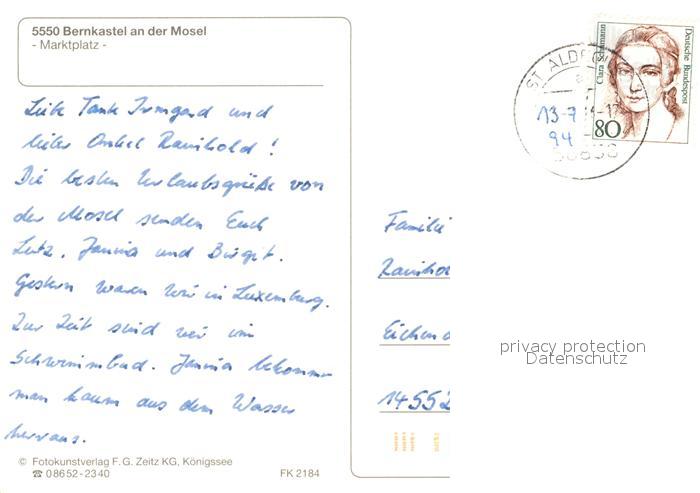 5550 Bernkastel an der Mosel
- Marktplatz -
Liebe Tante Irmgard und
lieber Onkel Reinhold!
Die besten Urlaubsgrüße von
der Mosel senden Euch
Lutz, Janina und Birgit.
Gestern waren wir in Luxemburg.
Zur Zeit sind wir im
Schwimmbad. Janina bekommt
man kaum aus dem Wasser
heraus.
© Fotokunstverlag F. G. Zeitz KG, Königssee
☎ 08652-2340
FK 2184
ST. ALDEG
13-7
94
Clara Schumann
Deutsche Bundespost
80
Familie
Reinhol
Eichen
14552
privacy protection
Datenschutz